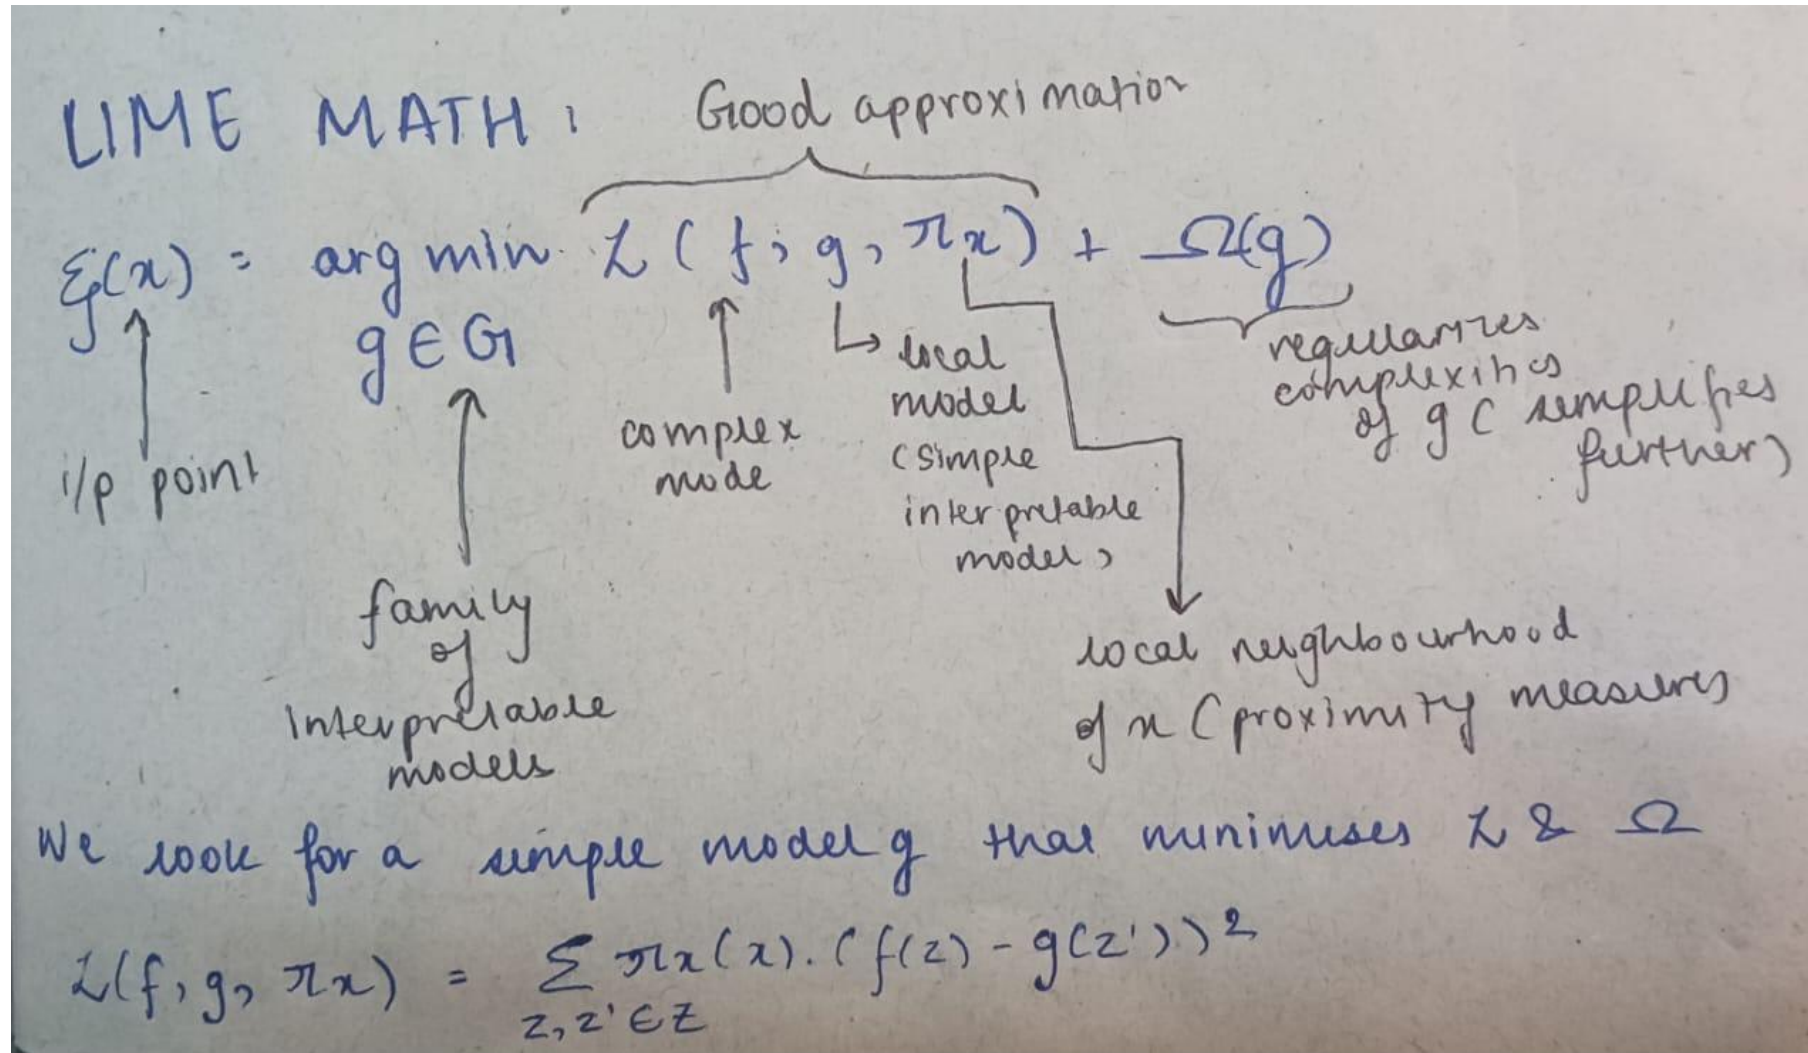 LIME MATH :
Good approximation
ξ(x) = arg min L(f, g, πx) + Ω(g)
g ∈ G
i/p point
family
of
interpretable
models
complex
mode
local
model
(simple
interpretable
model)
regularizes
complexities
of g ( simplifies
further)
local neighbourhood
of x (proximity measures)
We look for a simple model g that minimises L & Ω
L(f, g, πx) = Σ πx(x). (f(z) - g(z'))²
z, z' ∈ Z